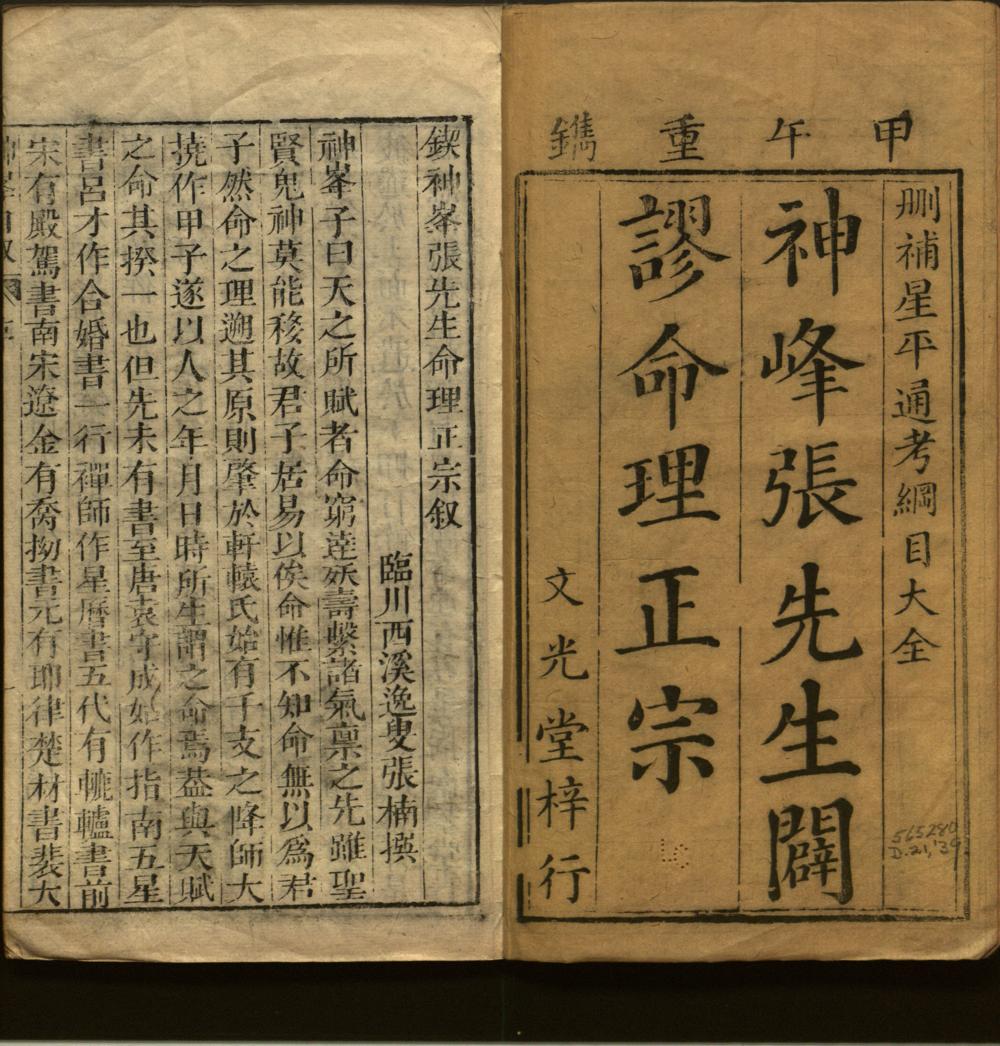 甲午重鐫
刪補星平通考綱目大全
神峰張先生闢
謬命理正宗
文光堂梓行
565280
D.21,'39
鍥神峯張先生命理正宗叙
臨川西溪逸叟張楠撰
神峯子曰天之所賦者命窮達殀壽繫諸氣禀之先雖聖
賢鬼神莫能移故君子居易以俟命惟不知命無以爲君
子然命之理遡其原則肇於軒轅氏始有干支之降師大
撓作甲子遂以人之年月日時所生謂之命焉葢與天賦
之命其揆一也但先未有書至唐袁守成始作指南五星
書呂才作合婚書一行禪師作星曆書五代有轆轤書前
宋有殿駕書南宋遼金有喬拗書元有耶律楚材書裴大